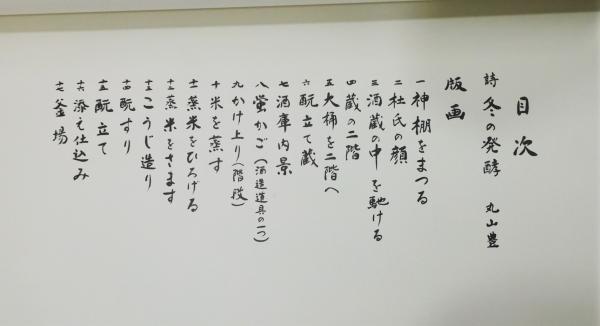 目次
詩 冬の発酵 丸山豊
版画
一 神棚をまつる
二 杜氏の顔
三 酒蔵の中を馳ける
四 蔵の二階
五 大桶を二階へ
六 酛立て蔵
七 酒庫内景
八 蛍かご(酒造道具の一つ)
九 かけ上り(階段)
十 米を蒸す
十一 蒸米をひろげる
十二 蒸米をさます
十三 こうじ造り
十四 酛すり
十五 酛立て
十六 添え仕込み
十七 釜場